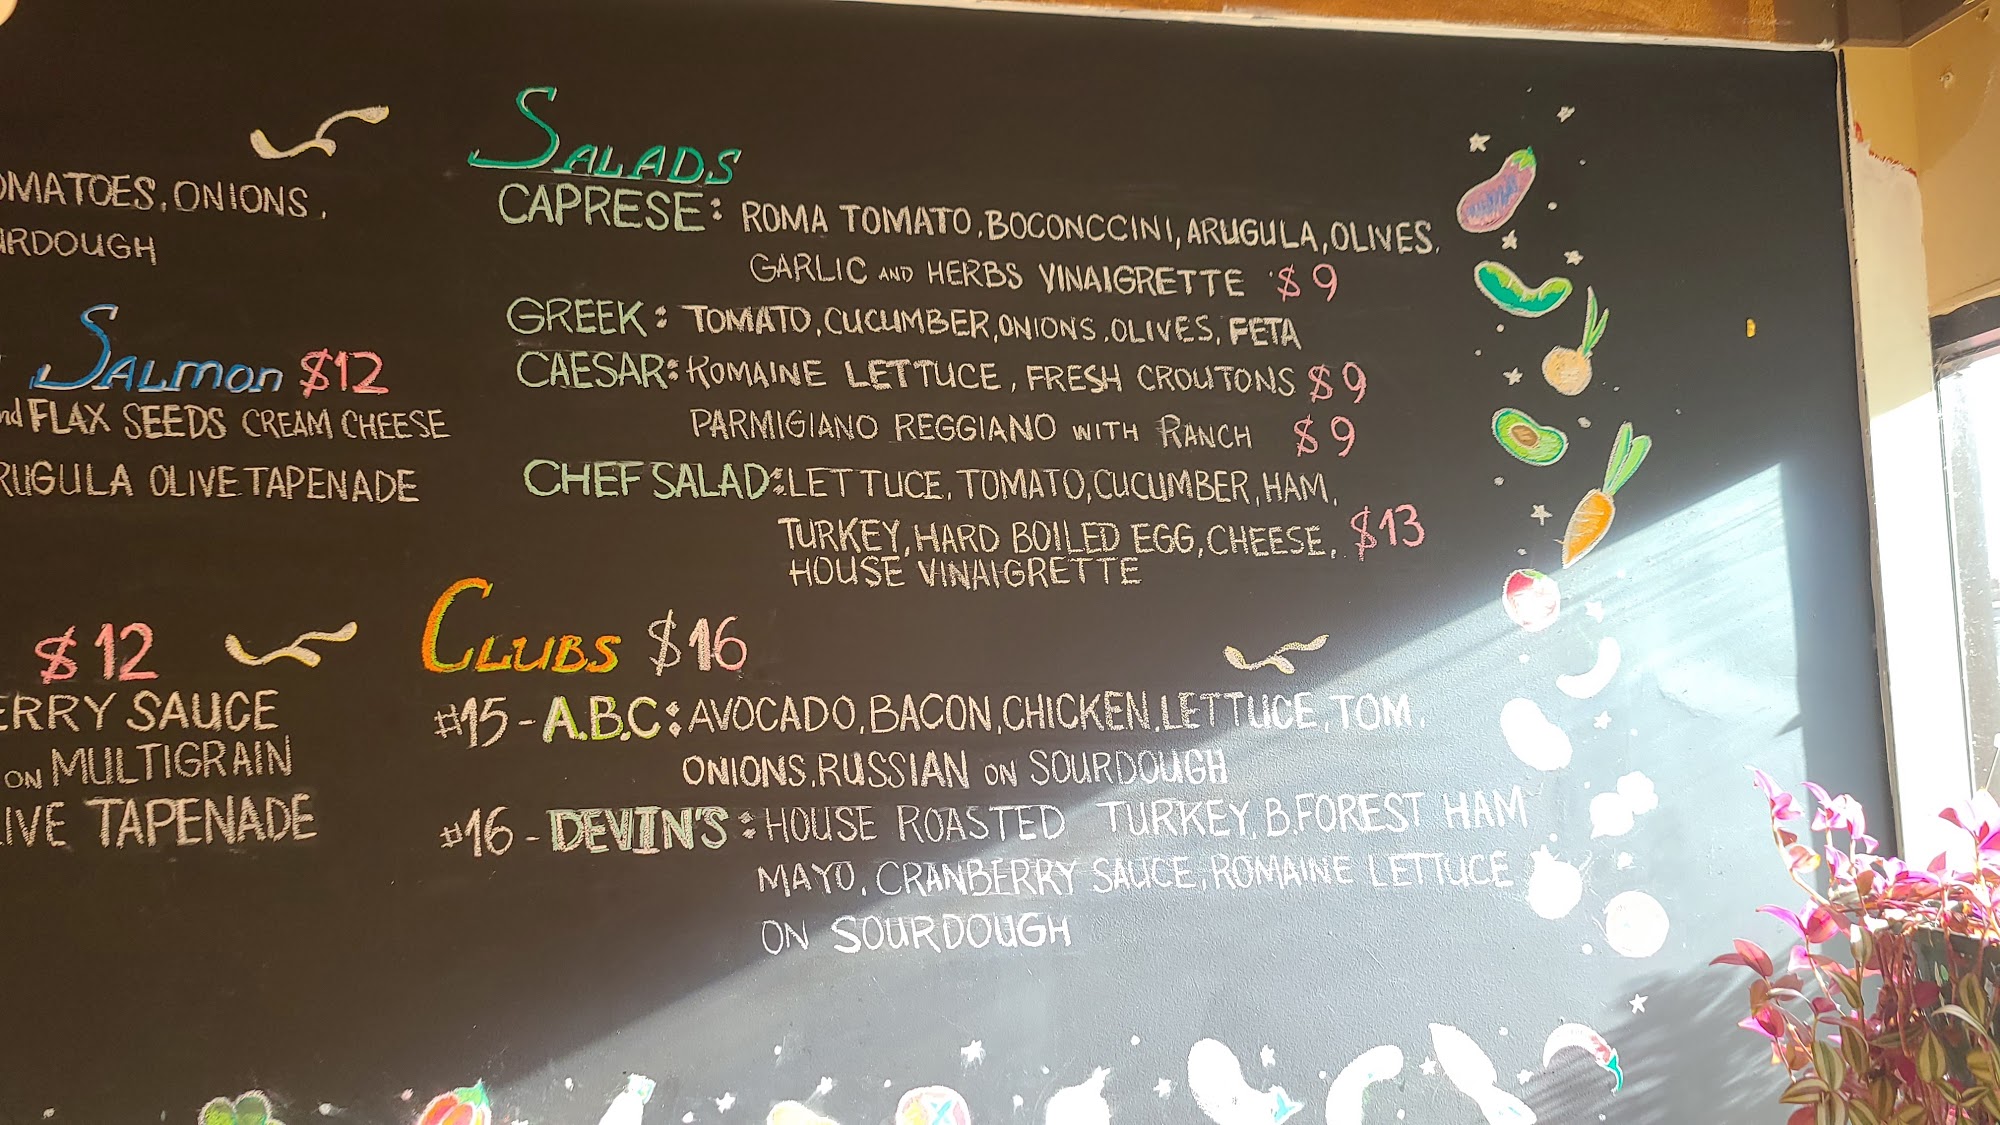 TOMATOES, ONIONS,
SOURDOUGH
SALMON $12
and FLAX SEEDS CREAM CHEESE
ARUGULA OLIVE TAPENADE
$12
SAUCE
ON MULTIGRAIN
TAPENADE
SALADS
CAPRESE: ROMA TOMATO, BOCONCCINI, ARUGULA, OLIVES,
GARLIC AND HERBS VINAIGRETTE $9
GREEK: TOMATO, CUCUMBER, ONIONS, OLIVES, FETA
CAESAR: ROMAINE LETTUCE, FRESH CROUTONS $9
PARMIGIANO REGGIANO WITH RANCH $9
CHEF SALAD: LETTUCE, TOMATO, CUCUMBER, HAM,
TURKEY, HARD BOILED EGG, CHEESE, $13
HOUSE VINAIGRETTE
CLUBS $16
#15 - A.B.C: AVOCADO, BACON, CHICKEN, LETTUCE TOM,
ONIONS, RUSSIAN ON SOURDOUGH
#16 - DEVIN'S: HOUSE ROASTED TURKEY, B.FOREST HAM
MAYO, CRANBERRY SAUCE, ROMAINE LETTUCE
ON SOURDOUGH